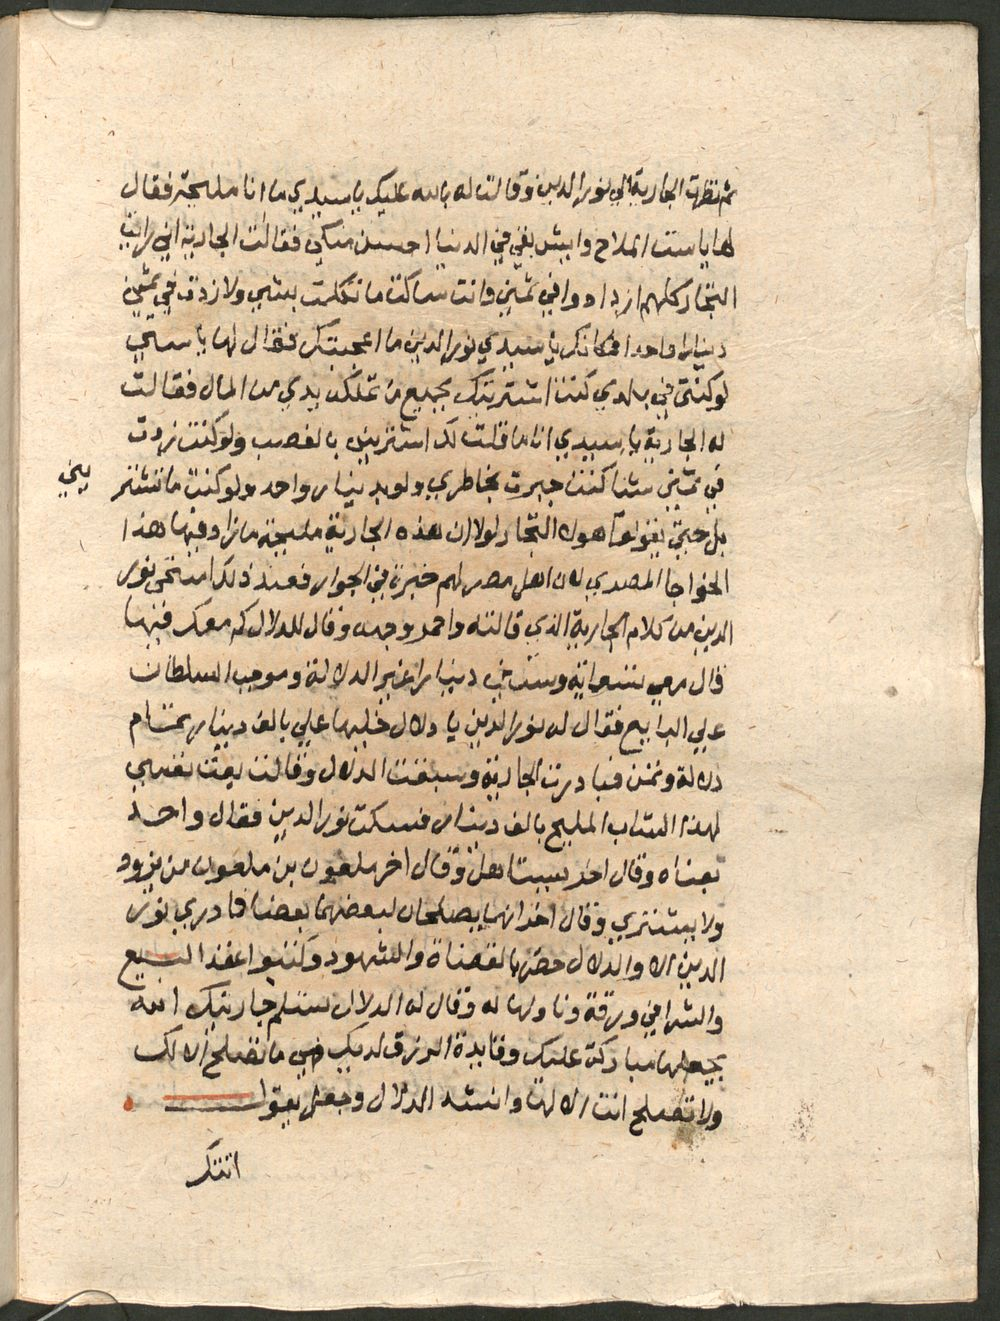 ثم نظرت الجارية الي نور الدين وقالت له بالله عليك يا سيدي ما انا مليحة فقال
لها يا ست الملاح وايش بقي في الدنيا احسن منكي فقالت الجارية اني رايت
التجار كلهم ازدادوا في ثمني وانت ساكت ما تكلمت بشي ولا زدت في ثمني
دينارا واحدا فكانك يا سيدي نور الدين ما اعجبتك فقال لها يا ستي
لو كنتي في بلادي كنت اشتريتك بجميع ما تملك يدي من المال فقالت
له الجارية يا سيدي انا ما قلت لك اشتريني بالغصب ولو كنت زدت
في ثمني شيا كنت جبرت بخاطري ولو بدينار واحد ولو كنت ما تشتر
يني
بل حتي يقولوا هولاء التجار لولا ان هذه الجارية مليحة ما زاد فيها هذا
الخواجا المصري لان اهل مصر لهم خبرة في الجوار فعند ذلك استحى نور
الدين من كلام الجارية الذي قالته واحمر وجهه وقال للدلال كم معك فيها
قال معي تسعماية وستين دينارا غير الدلالة وموجب السلطان
علي البايع فقال له نور الدين يا دلال خليها علي بالف دينار بتمام
دلالة وثمن فبادرت الجارية وسبقت الدلال وقالت بعت نفسي
لهذا الشاب المليح بالف دينار فسكت نور الدين فقال واحد
بعناه وقال اخر يستاهل وقال اخر ملعون بن ملعون من يزود
ولا يشتري وقال اخر انهما يصلحان لبعضهما بعضا فما دري نور
الدين الا والدلال حضر بالقضاة والشهود وكتبوا عقد البيع
والشرا في ورقة وناولها له وقال له الدلال تسلم جاريتك الله
يجعلها مباركة عليك وفايدة الرزق لديك فهي ما تصلح الا لك
ولا تصلح انت الا لها وانشد الدلال وجعل يقول
اتتك